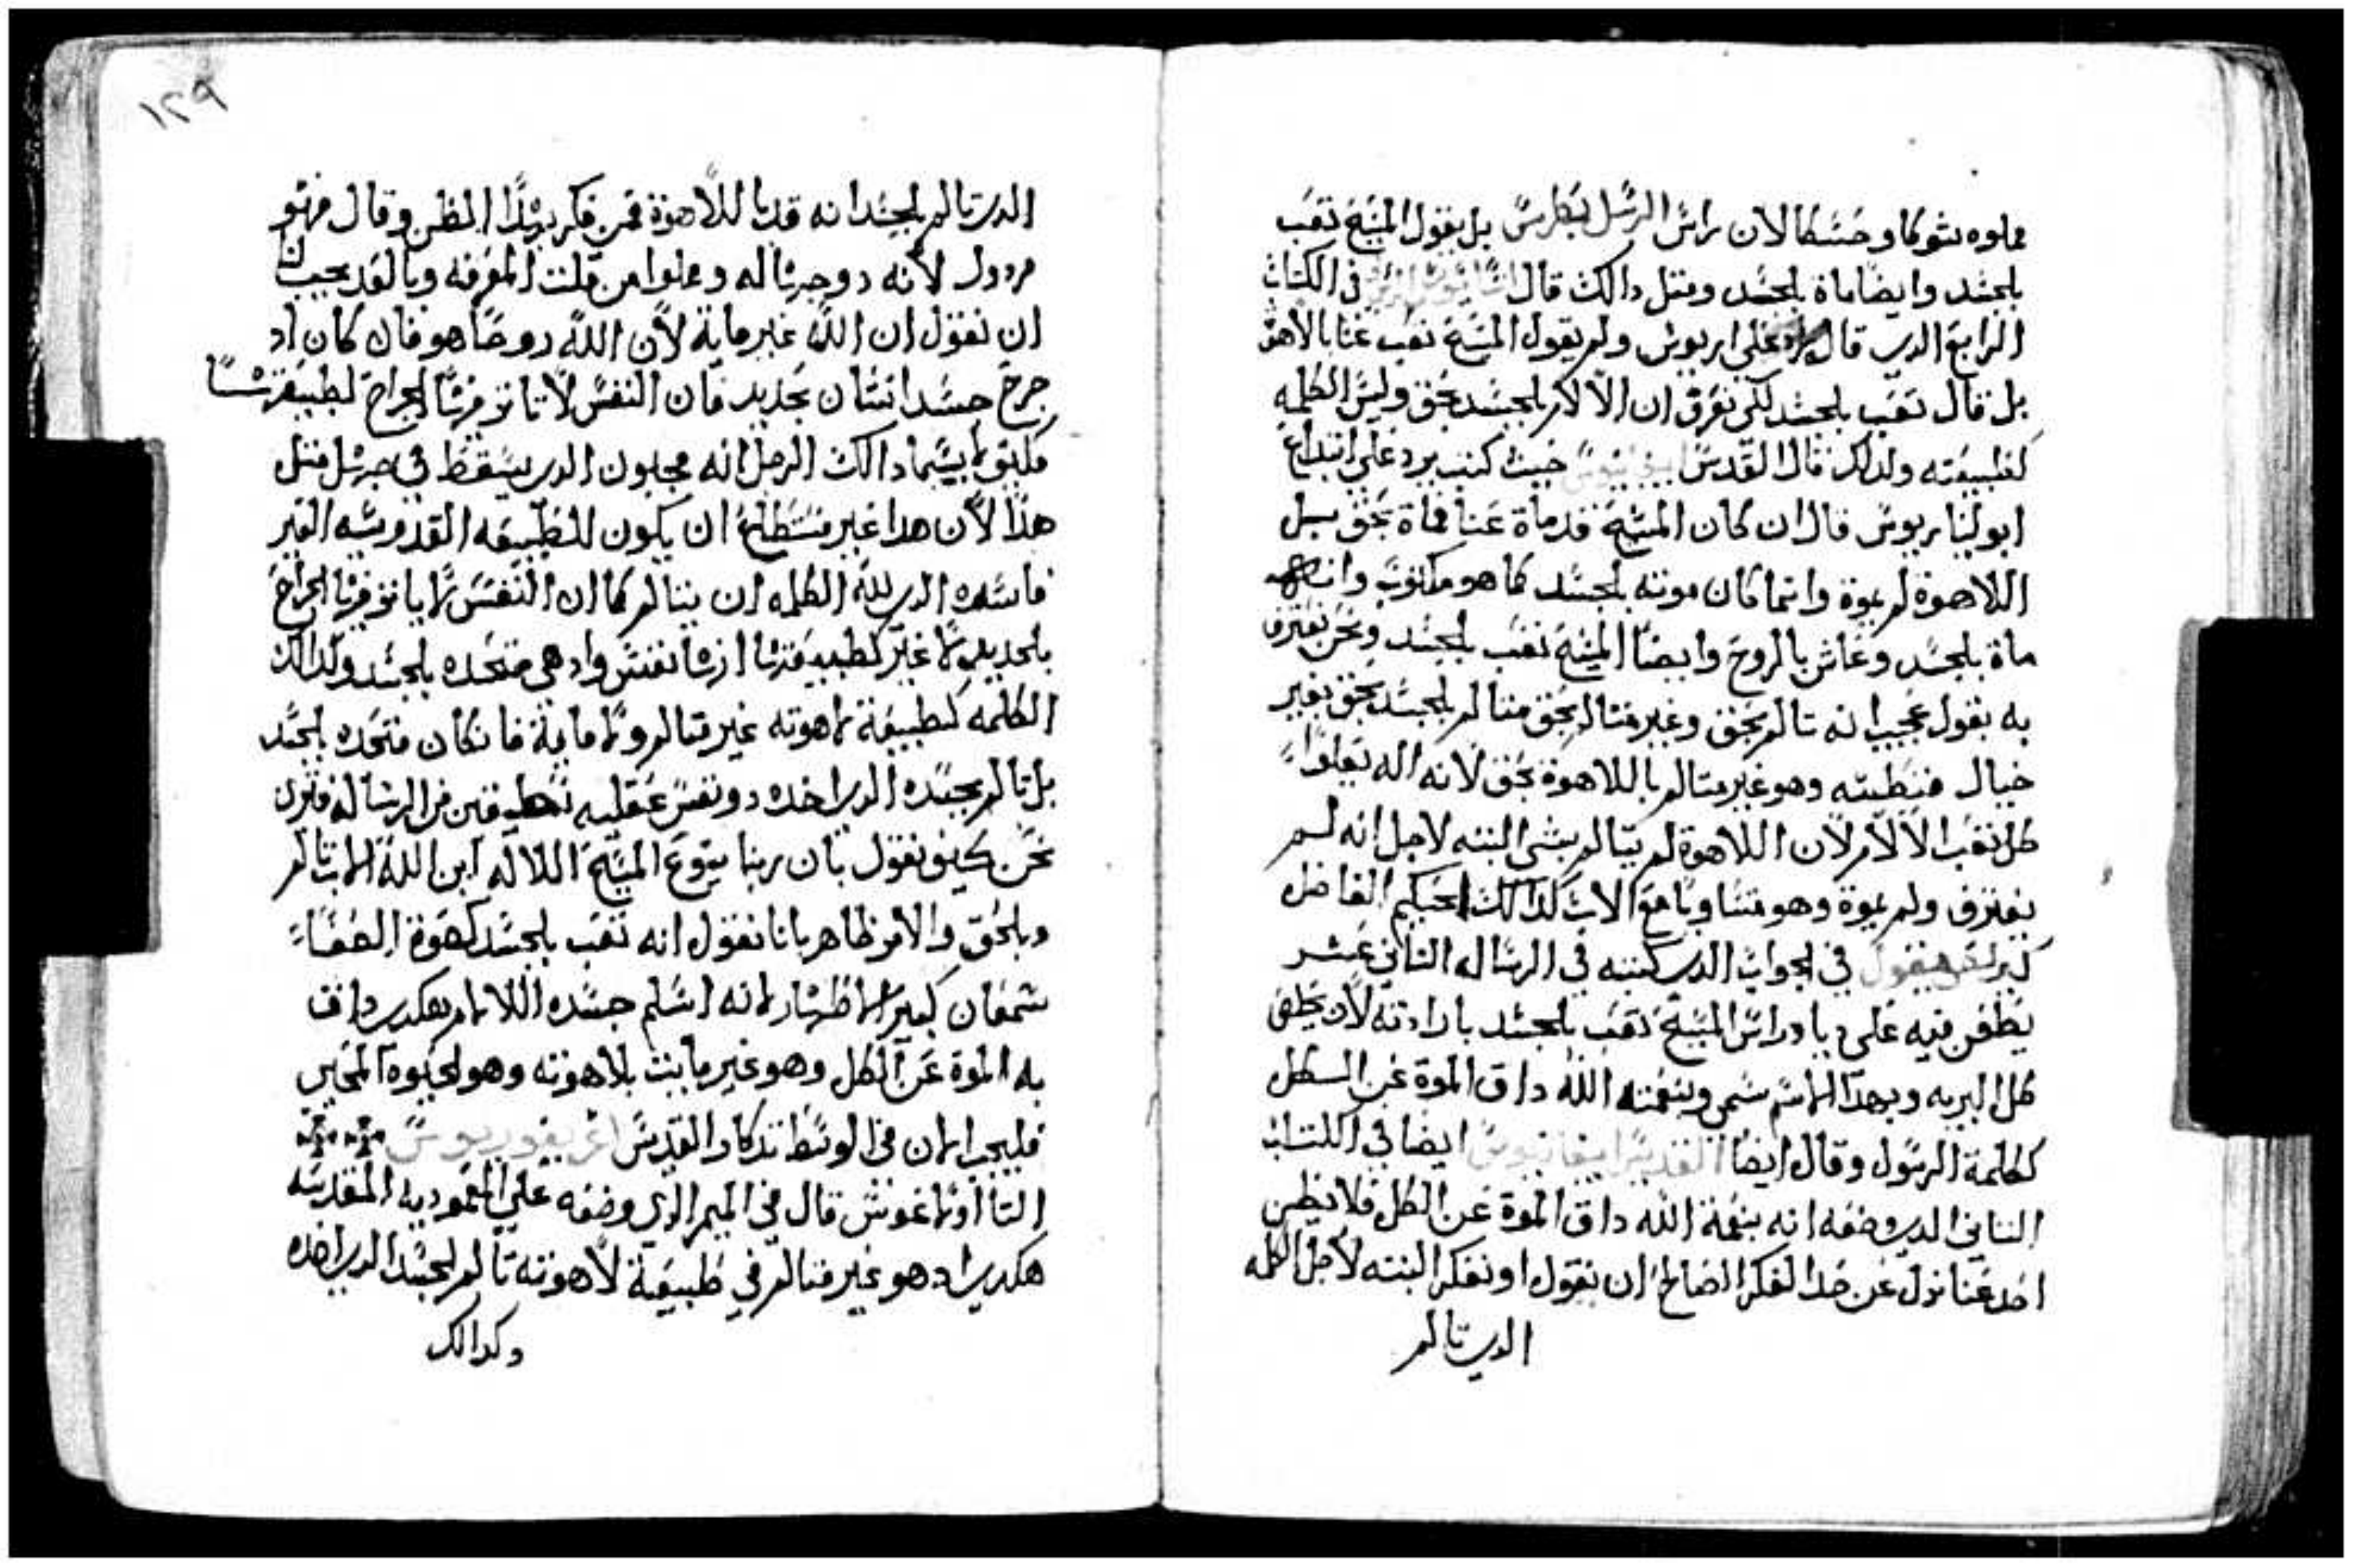 مملوه شوكا وحسكا لان راس الرسل بطرس بل يقول المسيح تعب
بلجسد وايضا ماة بلجسد ومتل دالك قال في الكتاب
الرابع الدي قال علي اريوس ولم يقول المسيح تعب عنا بالاهوة
بل قال تعب بلجسد لكي نعرف ان الالام لجسد بحق وليس الكلمه
لطبيعته ولدلك قال القديس حيث كتب يرد علي ابتداع
ابوليناريوس قال ان كان المسيح قد ماة عنا فماة بحق بل
اللاهوة لم يموة وانما كان موته بلجسد كما هو مكتوب وانه
ماة بلجسد وعاش بالروح وايضا المسيح تعب بلجسد ونحن نعترف
به بقول عجيب انه تالم بحق وغير متالم بحق متالم بلجسد بحق بغير
خيال وهو غير متالم باللاهوة بحق لانه اله يعلوا
كل تعب الالام لان اللاهوة لم يتالم بشي البته لاجل انه لم
يفترق ولم يموة وهو متساويا مع الاب كدالك الحكيم الفاضل
كيرلس يقول في الجواب الدي كتبه في الرساله التاني عشر
يطعن فيه علي دياودراس المسيح تعب بلجسد بارادته لان يخلص
كل البريه وبهدا الاسم سمي وبنعمته الله داق الموة عن الكل
ككلمة الرسول وقال ايضا القديس ابيفانيوس ايضا في الكتاب
التاني الدي وضعه انه بنعمة الله داق الموة عن الكل فلا يظن
احد عنا نزل عن حد الفكر الصالح ان نقول او نفكر البته لاجل الكلمه
الدي تالم
١٢٩
الدي تالم بلجسد انه قد نا للاهوة فمن فكر بهدا الظن وقال فهو
مردول لانه دو جساله ومملوا من قلت المعرفه وبالغد يجب لنا
ان نقول ان الله غير ماية لان الله روحا هو فان كان اد
جرح جسد انسان بحديد فان النفس لا تاتر فيها الجراح لطبيعتها
فكيف بشما دالك الرجل انه مجنون الدي يسقط في جهل متل
هدا لان هدا غير مستطاع ان يكون للطبيعه القدوسه الغير
فاسده الدي لله الكلمه ان يتالم كما ان النفس لا ياتر فيها الجراح
بلحديد لا غير لطبيعتها ازها نفس واد هي متحده بلجسد وكدالك
الكلمه لطبيعة لاهوته غير متالم ولا ماية فانكان متحده بلجسد
بل تالم بجسده الدي اخده دو نفس عقليه من الرساله فنري
نحن كيف نقول بان ربنا يسوع المسيح اللاله ابن الله الا تالم
وبلحق والامر ظاهر بانا نقول انه تعب بلجسد كهوة الصفاء
شمعان كبير الاطهار لانه اسلم جسده اللالام هكدي داق
به الموة عن الكل وهو غير مايت بلاهوته وهو الحيوه المحيي
فليجب الان في الوسط تدكار القديس اغريغوريوس
التااولاغوس قال في الميمر الدي وضعه علي المعموديه المقدسه
هكدي اد هو غير متالم في طبيعة لاهوته تالم لجسد الدي اخده
وكدالك